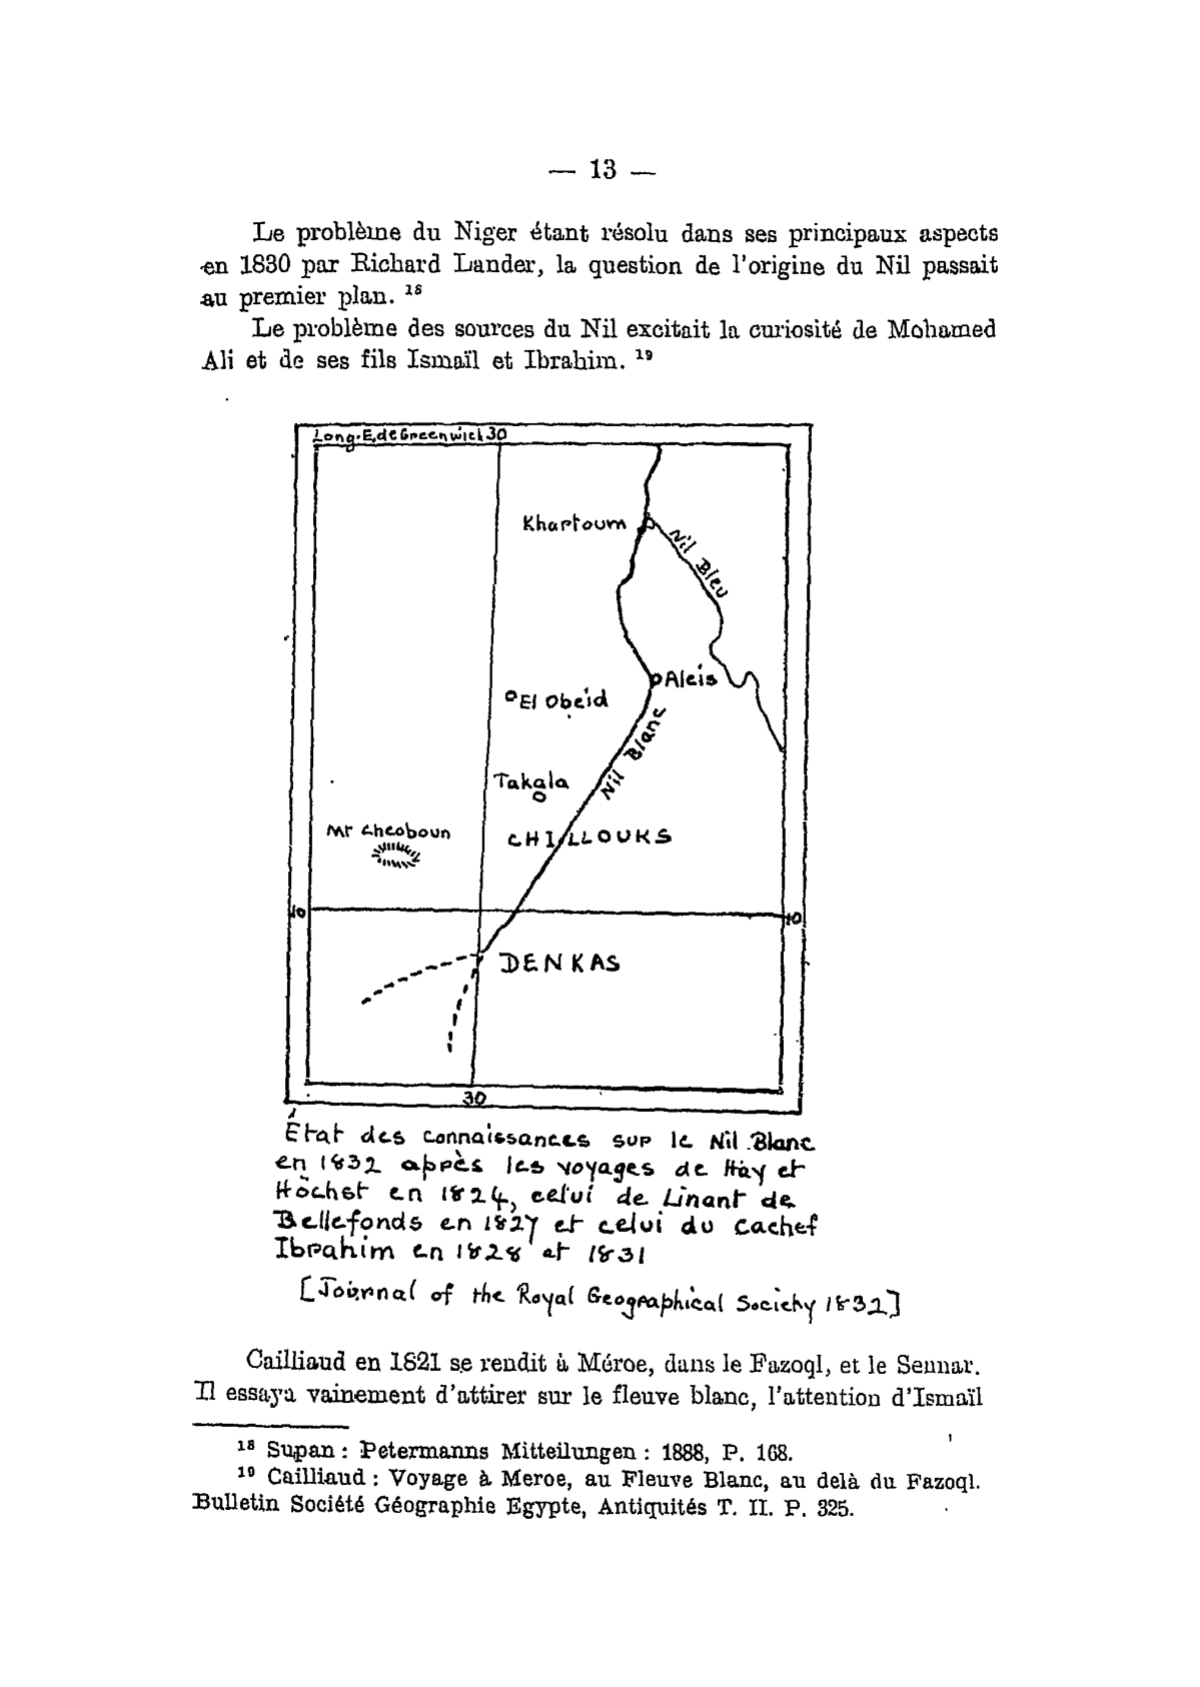 — 13 —
Le problème du Niger étant résolu dans ses principaux aspects
en 1830 par Richard Lander, la question de l'origine du Nil passait
au premier plan. 18
Le problème des sources du Nil excitait la curiosité de Mohamed
Ali et de ses fils Ismaïl et Ibrahim. 19
Long. E. de Greenwich 30
Khartoum
Nil Bleu
Aleis
El Obeid
Nil Blanc
Takala
Mt Cheoboun
CHILLOUKS
10
10
DENKAS
30
État des connaissances sur le Nil Blanc
en 1832 après les voyages de Hay et
Höchst en 1824, celui de Linant de
Bellefonds en 1827 et celui du Cachef
Ibrahim en 1828 et 1831
[Journal of the Royal Geographical Society 1832]
Cailliaud en 1821 se rendit à Méroe, dans le Fazoql, et le Sennar.
Il essaya vainement d'attirer sur le fleuve blanc, l'attention d'Ismaïl
18 Supan : Petermanns Mitteilungen : 1888, P. 168.
19 Cailliaud : Voyage à Meroe, au Fleuve Blanc, au delà du Fazoql.
Bulletin Société Géographie Egypte, Antiquités T. II. P. 325.